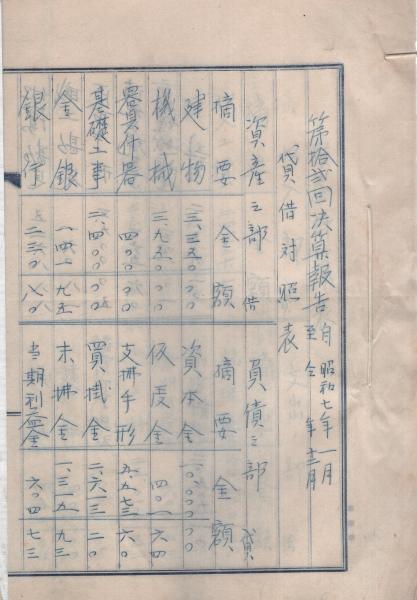 第拾弐回決算報告 自 昭和七年 一月
至 仝 年 十二月
貸借対照表
資産之部 借
摘要 金額
建物 三、三五〇〇〇
機械 三、九五〇〇〇
器具什器 四〇〇〇〇
基礎工事 二、四〇〇〇〇
金銀 一四一九五
銀行 二三〇八〇
負債之部 貸
摘要 金額
資本金 一〇、〇〇〇〇〇
仮受金 四〇一六四
支拂手形 五、五七三六〇
買掛金 二、六一三二〇
未拂金 一、三一五九三
当期利益金 六〇四七三